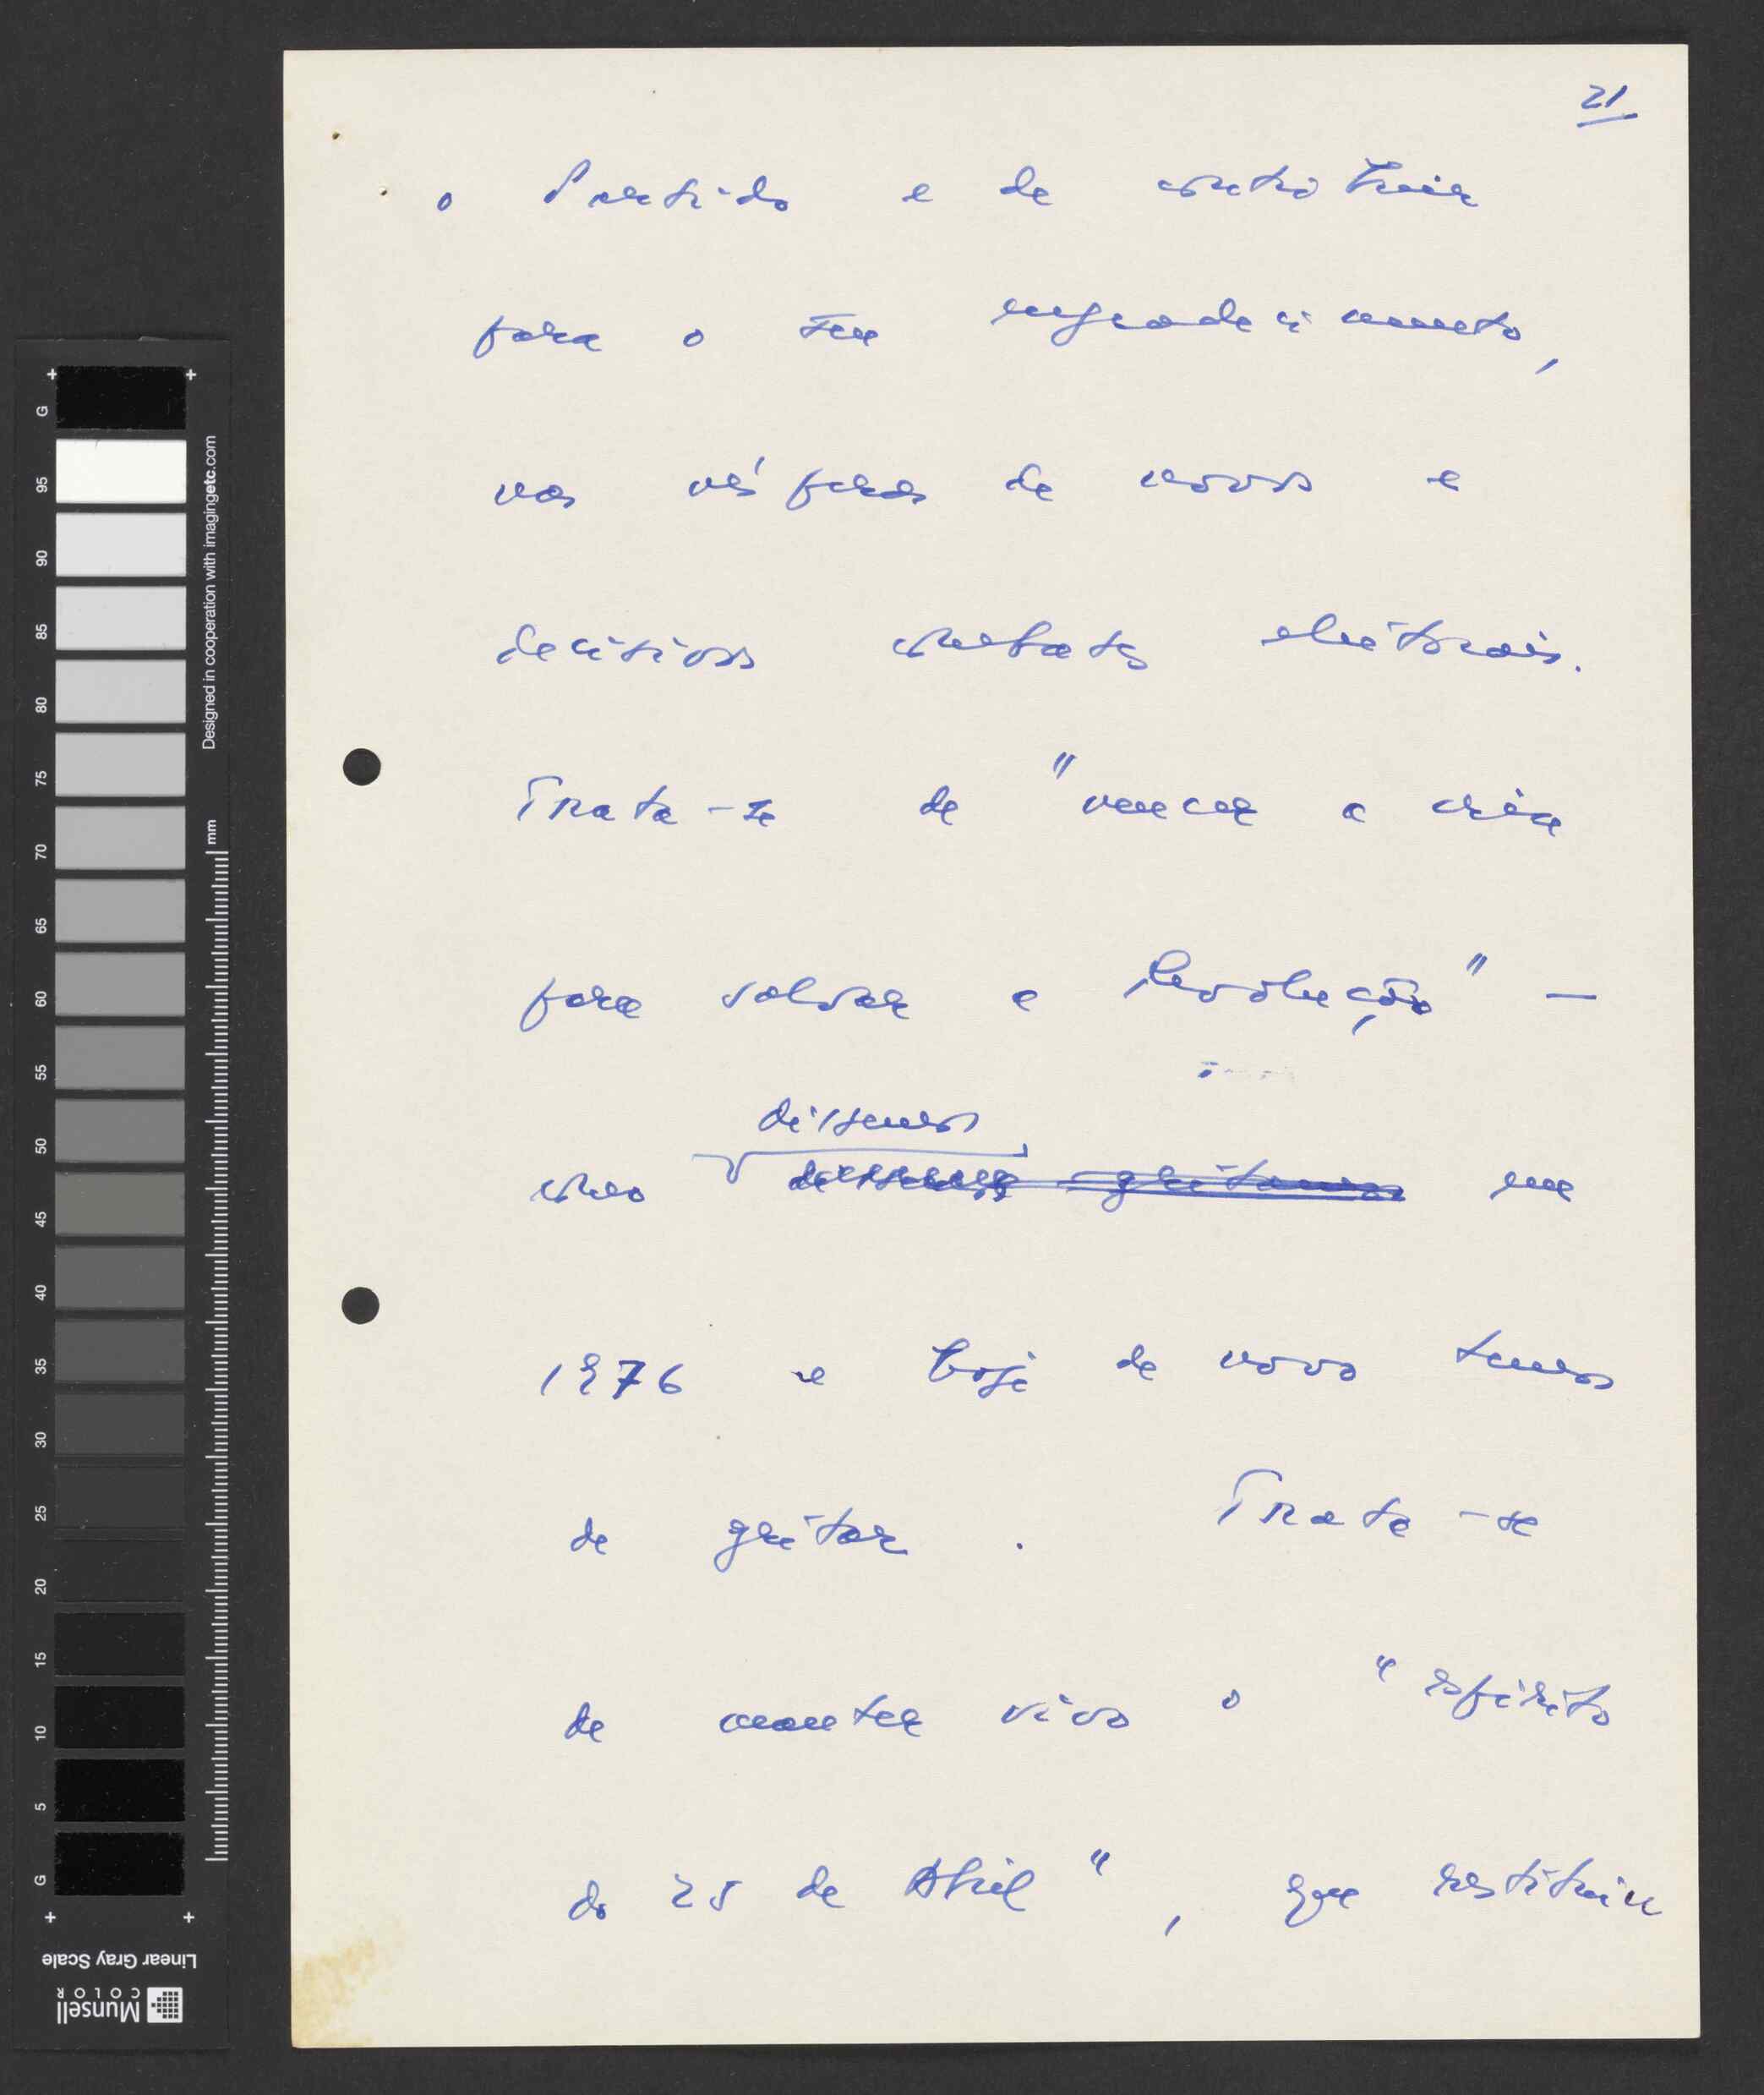 21
o Partido e de contribuir
para o seu engrandecimento,
nas vésperas de novos e
decisivos combates eleitorais.
Trata-se de "vencer a crise
para salvar a Revolução" —
dissemos
como gritamos em
1976 e hoje de novo temos
de gritar. Trata-se
de manter vivo o "espírito
do 25 de Abril", que restituiu
G
95
90
85
80
75
70
65
60
55
50
45
40
35
30
25
20
15
10
5
G
Designed in cooperation with imagingetc.com
mm
Linear Gray Scale
Munsell
COLOR